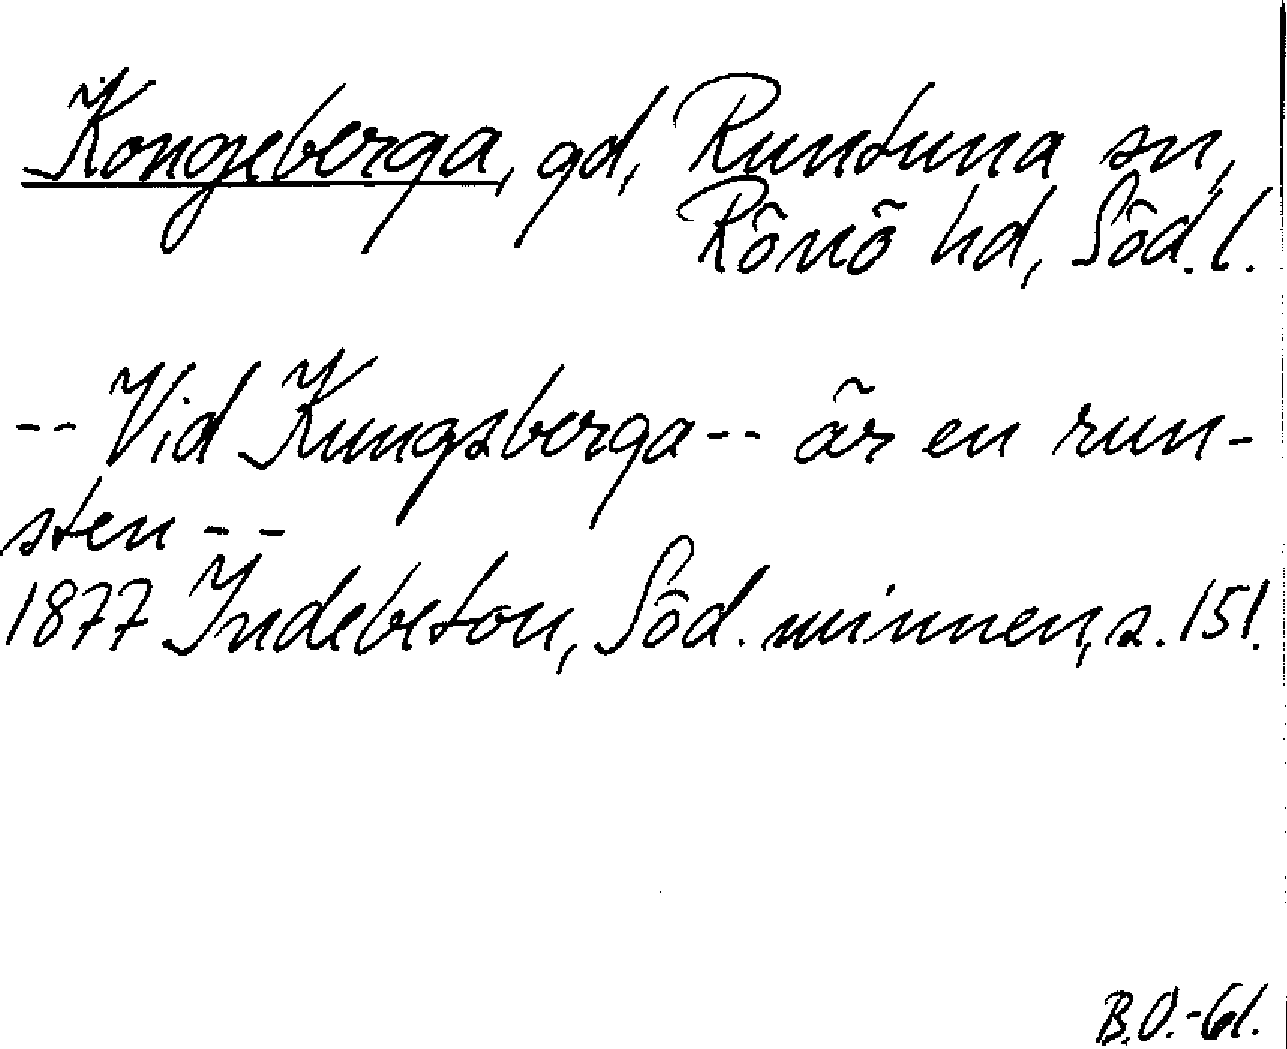 Kongeberga, gd, Runtuna sn,
Rönö hd, Söd. l.
-- Vid Kungsberga -- är en run-
sten --
1877 Indebetou, Söd. minnen, s. 151.
B.O.-61.